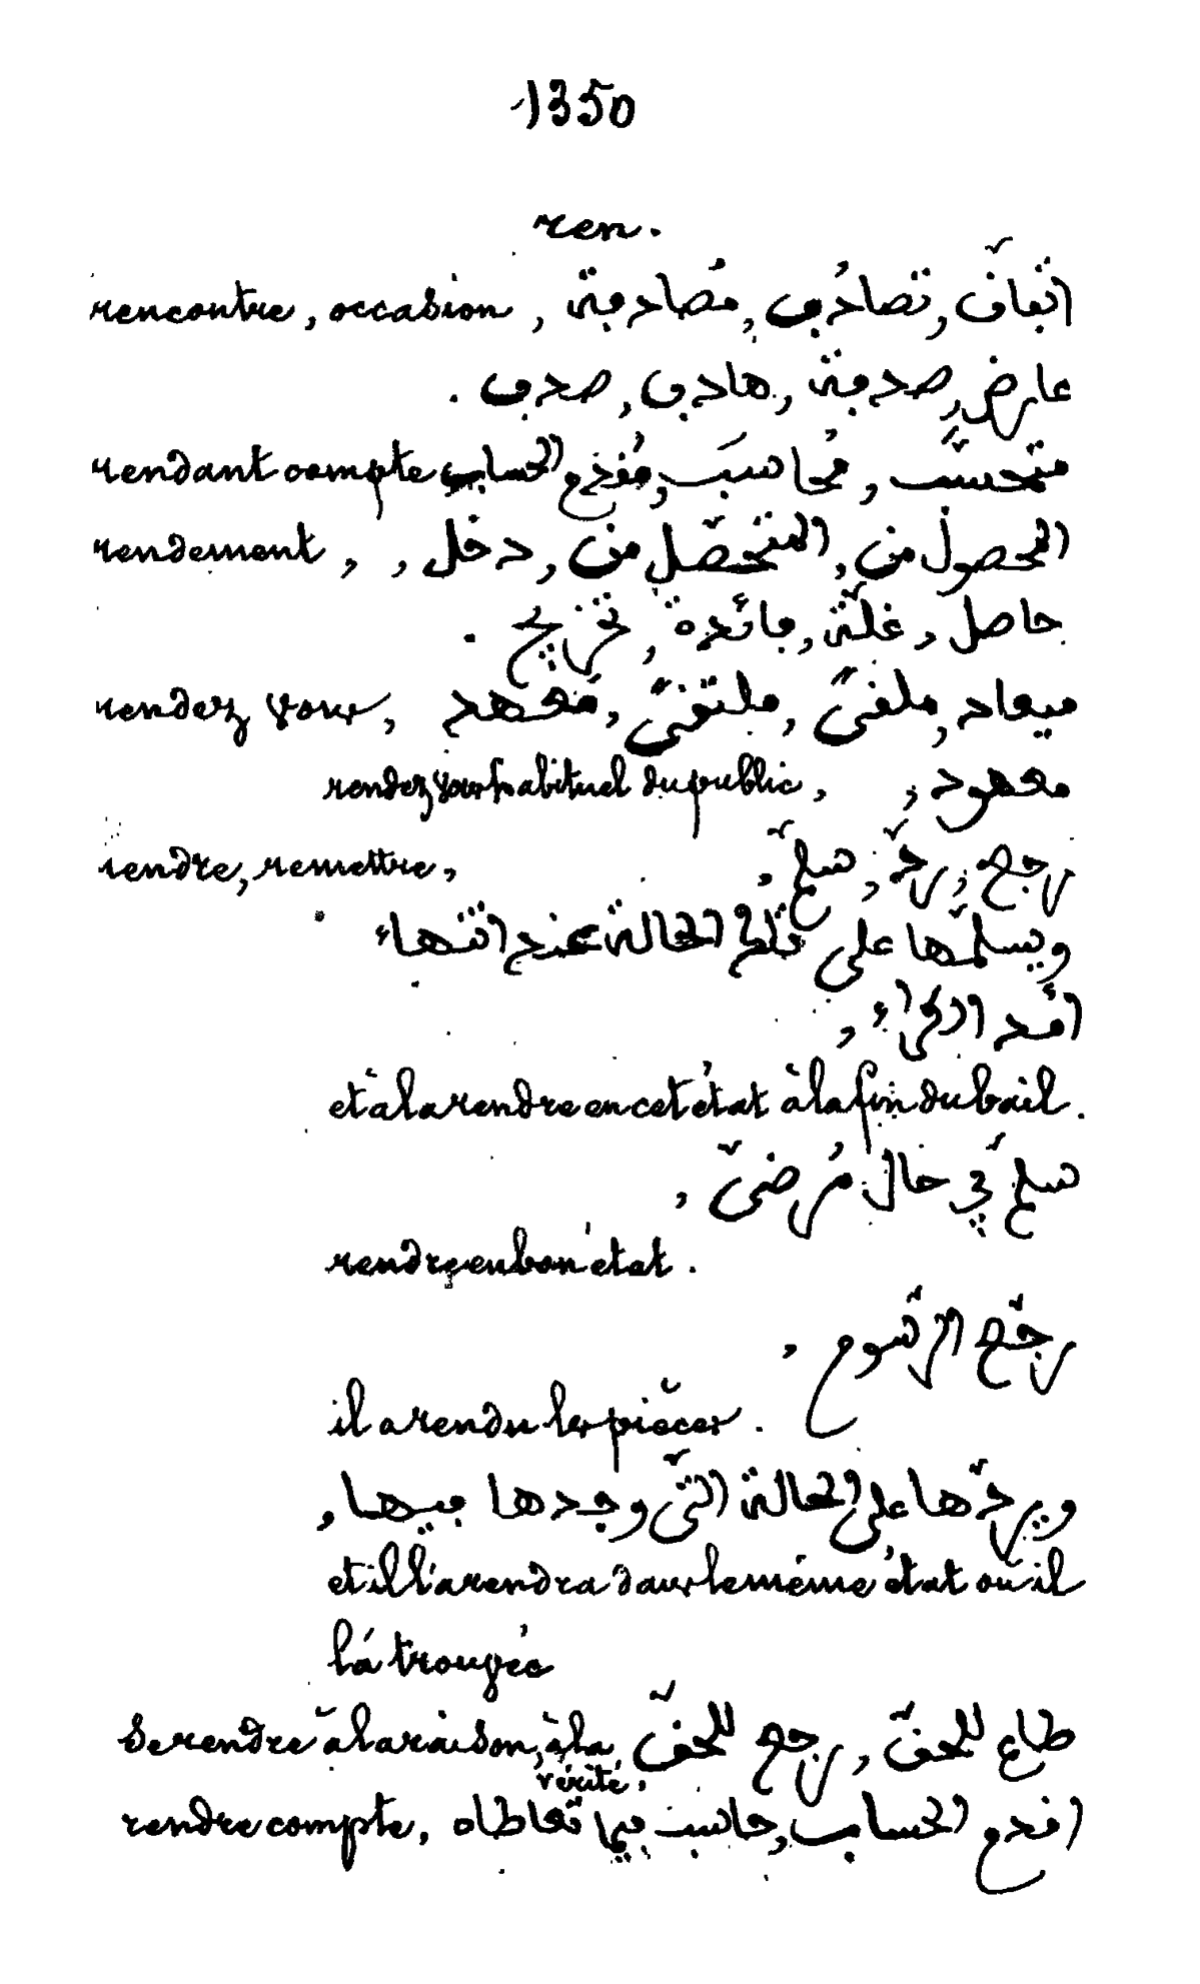 1350
ren.
rencontre, occasion, اتفاق, تصادُف, مُصادفة,
عارض, صدفة, هادف, صدف.
rendant compte متحسّب, مُحاسَب, مُقدّم الحساب
rendement, , المحصول من, المتحصّل من, دخل,
حاصل, غلّة, فائدة, تخريج.
rendez vous, ميعاد, ملقىً, ملتقىً, معهد,
rendez vous habituel du public, معهود,
rendre, remettre, رجع, ردّ, سلّم,
ويسلّمها على تلك الحالة عند انتهاء
امد الكراء,
et à la rendre en cet état à la fin du bail.
سلّم في حال مُرضىّ,
rendre en bon état.
رجّع الرسوم,
il a rendu les pièces.
ويردّها على الحالة التي وجدها فيها,
et il l'a rendra dans le même état où il
l'a trouvée
se rendre à la raison, à la vérité, طاع للحقّ, رجع للحقّ
rendre compte, اقدم الحساب, حاسب فيما تعاطاه